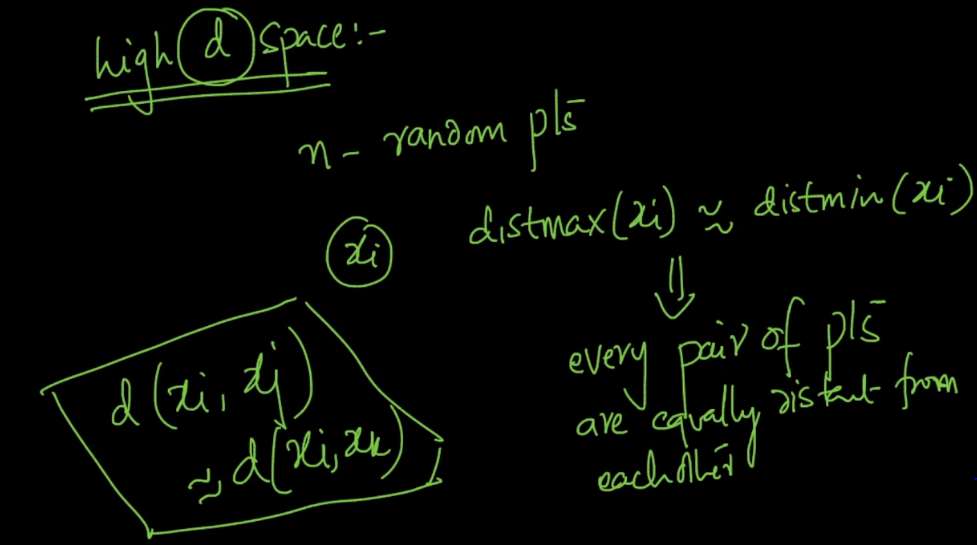 high d space:-
n - random pts
xi
distmax(xi) ≈ distmin(xi)
⇓
every pair of pts
are equally distant from
each other
d(xi, xj)
≈ d(xi, xk)